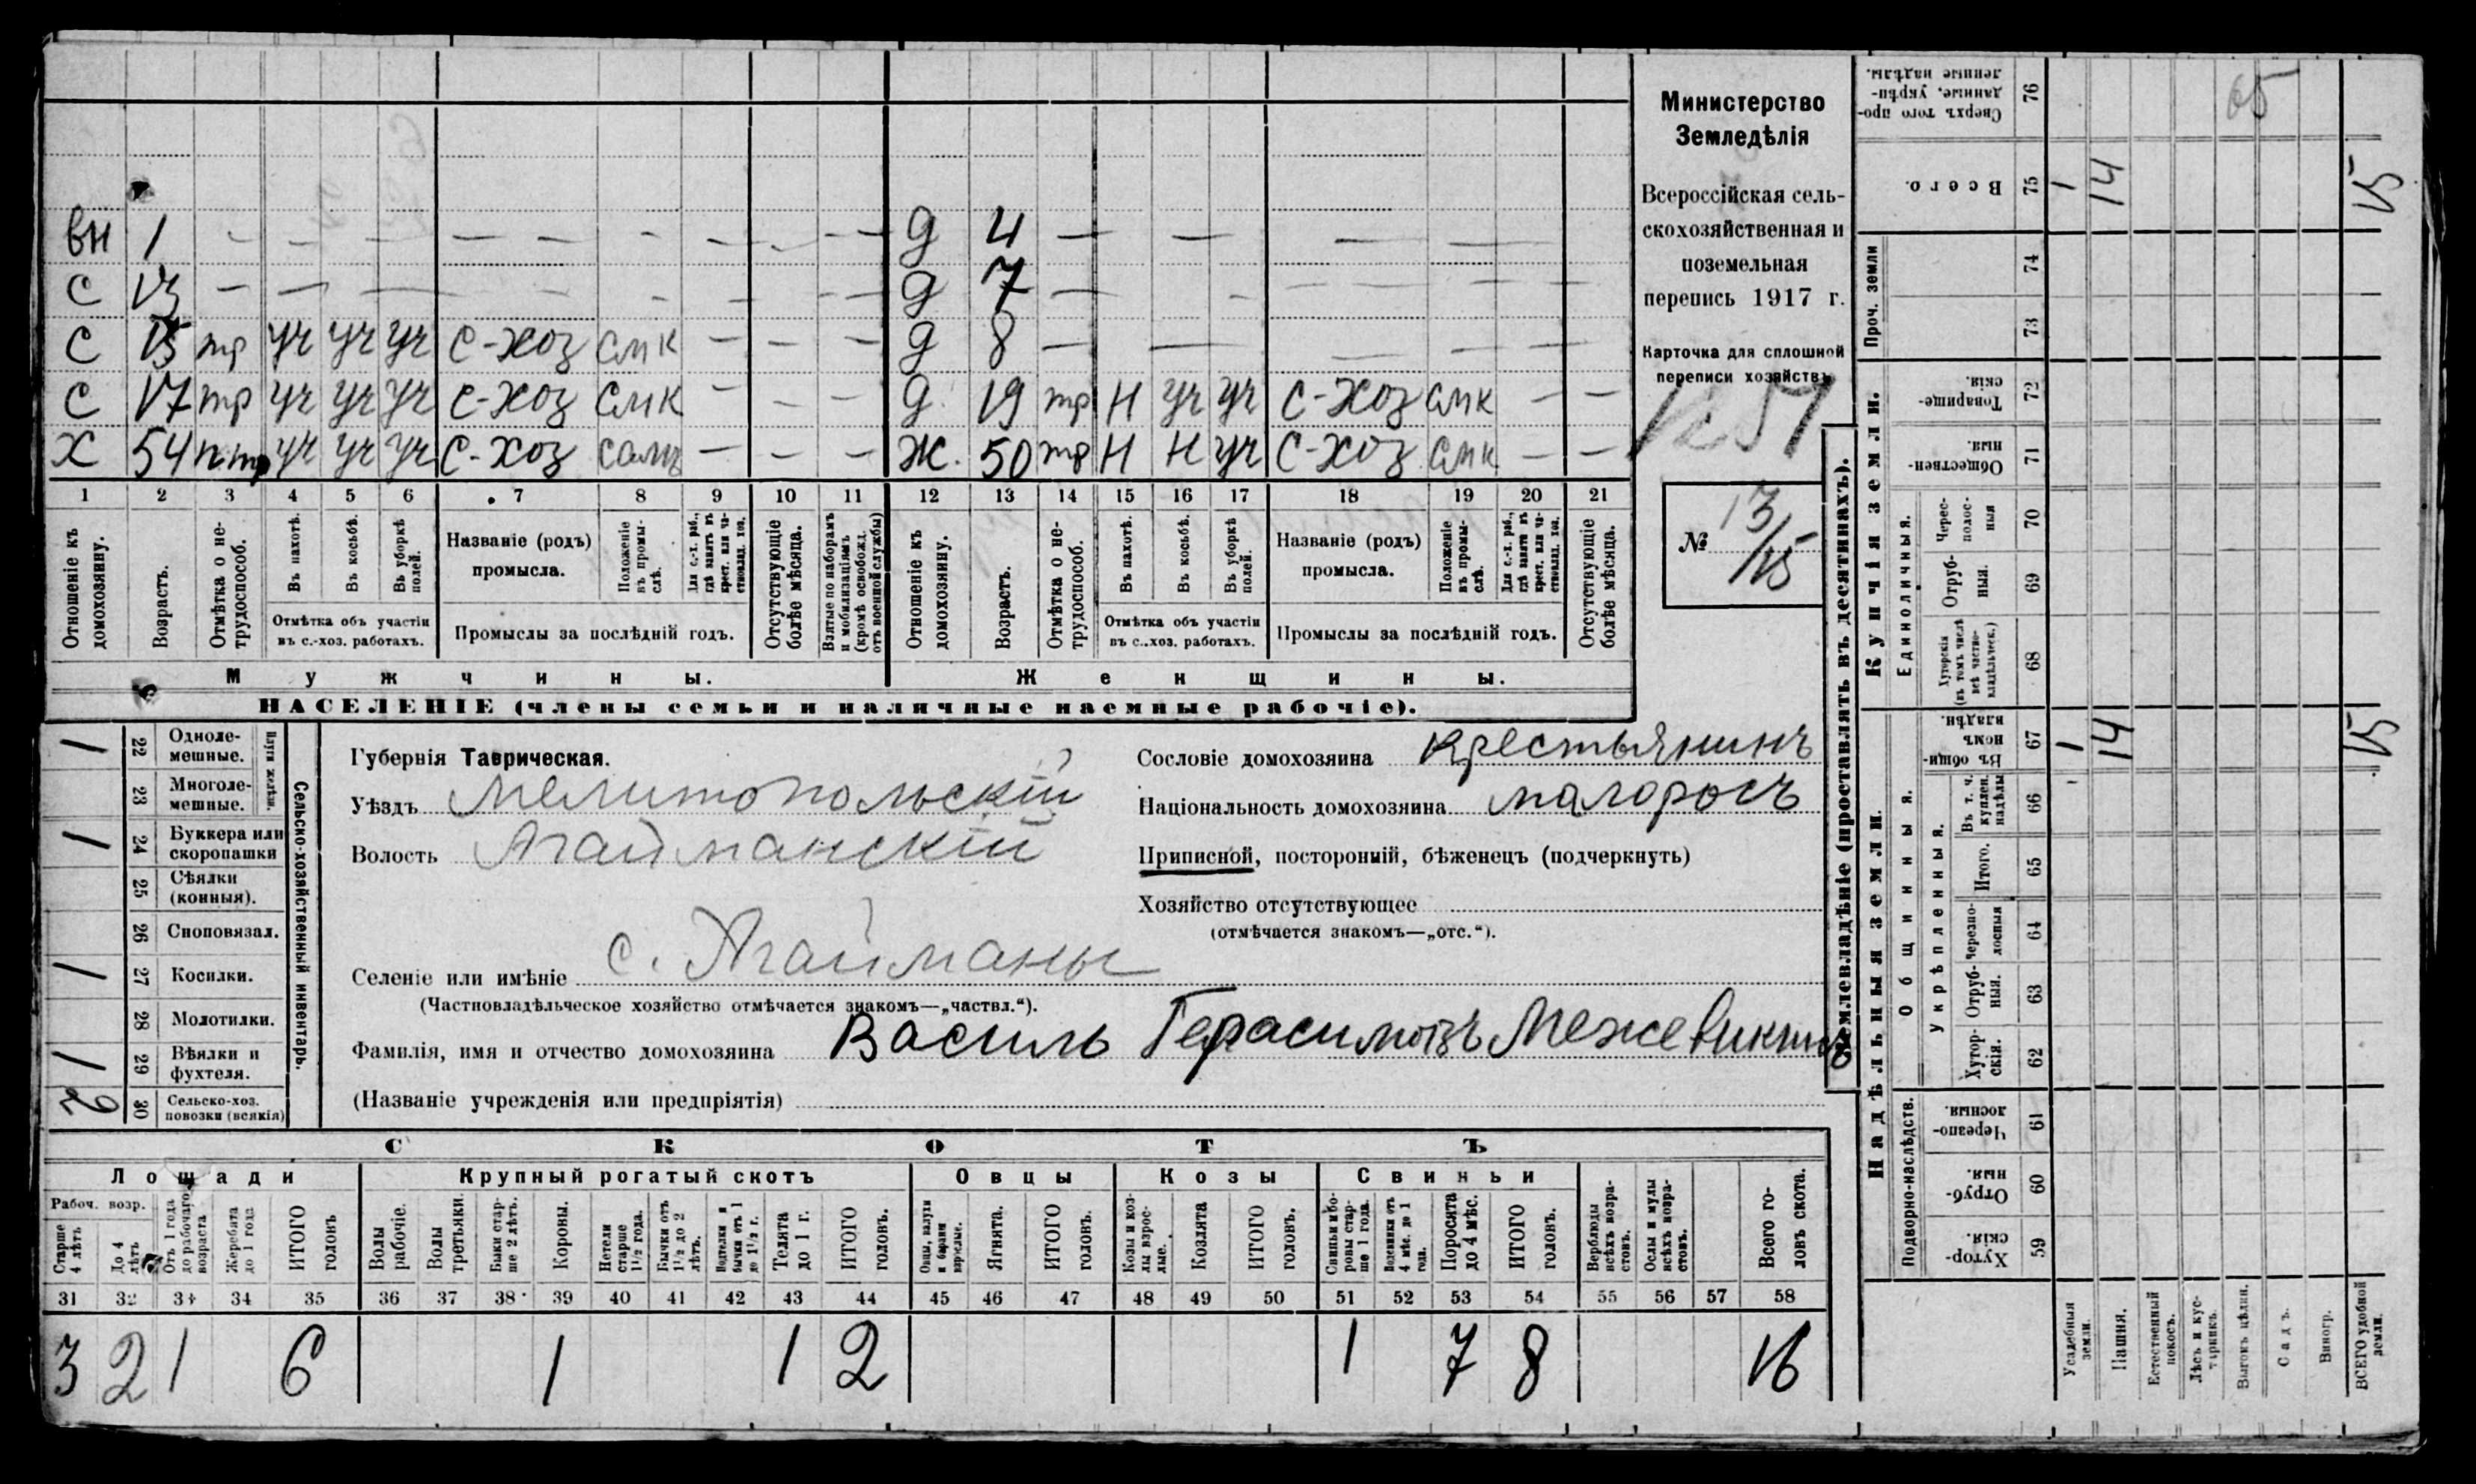 вн 1 — — — — — — — — — — д 4 — — — —
с 13 — — — — — — — — д 7 — — — — — —
с 15 тр уч уч уч с-хоз смк — — — д 8 — — — — — —
с 17 тр уч уч уч с-хоз смк — — — д. 19 тр Н уч уч с-хоз смк — —
Х 54 п тр уч уч уч с-хоз сам — — — Ж. 50 тр Н Н уч с-хоз. смк — —
1 2 3 4 5 6 7 8 9 10 11 12 13 14 15 16 17 18 19 20 21
Отношеніе къ домохозяину.
Возрастъ.
Отмѣтка о нетрудоспособ.
Въ пахотѣ.
Въ косьбѣ.
Въ уборкѣ полей.
Отмѣтка объ участіи въ с.-хоз. работахъ.
Названіе (родъ) промысла.
Положеніе въ промыслѣ.
Для с.-х. раб., гдѣ занятъ въ крест. или частновлад. хоз.
Промыслы за послѣдній годъ.
Отсутствующіе болѣе мѣсяца.
Взятые по наборамъ и мобилизаціямъ (кромѣ освобожд. отъ военной службы)
Отношеніе къ домохозяину.
Возрастъ.
Отмѣтка о нетрудоспособ.
Въ пахотѣ.
Въ косьбѣ.
Въ уборкѣ полей.
Отмѣтка объ участіи въ с.-хоз. работахъ.
Названіе (родъ) промысла.
Положеніе въ промыслѣ.
Для с.-х. раб., гдѣ занята въ крест. или частновлад. хоз.
Промыслы за послѣдній годъ.
Отсутствующіе болѣе мѣсяца.
Мужчины.
Женщины.
НАСЕЛЕНІЕ (члены семьи и наличные наемные рабочіе).
Министерство
Земледѣлія
Всероссійская сель-
скохозяйственная и
поземельная
перепись 1917 г.
Карточка для сплошной
переписи хозяйствъ
№ 13/15
1 22 Одноле-мешные.
23 Многоле-мешные.
Плуги желѣзн.
1 24 Буккера или скоропашки
25 Сѣялки (конныя).
26 Сноповязал.
1 27 Косилки.
28 Молотилки.
1 29 Вѣялки и фухтеля.
2 30 Сельско-хоз. повозки (всякія)
Сельско-хозяйственный инвентарь.
Губернія Таврическая.
Уѣздъ Мелитопольскій
Волость Агайманскій
Селеніе или имѣніе с. Агайманы
(Частновладѣльческое хозяйство отмѣчается знакомъ—„частвл.“).
Фамилія, имя и отчество домохозяина Василь Герасимовъ Межевикинъ
(Названіе учрежденія или предпріятія)
Сословіе домохозяина крестьянинъ
Національность домохозяина малоросъ
Приписной, посторонній, бѣженецъ (подчеркнуть)
Хозяйство отсутствующее
(отмѣчается знакомъ—„отс.“).
СКОТЪ
Лошади
Крупный рогатый скотъ
Овцы
Козы
Свиньи
Рабоч. возр.
Старше 4 лѣтъ
До 4 лѣтъ
Отъ 1 года до рабочаго возраста
Жеребята до 1 года
ИТОГО головъ
Волы рабочіе.
Волы третьяки.
Быки старше 2 лѣтъ.
Коровы.
Нетели старше 1½ года.
Бычки отъ 1½ до 2 лѣтъ.
Подтелки и бычки отъ 1 до 1½ г.
Телята до 1 г.
ИТОГО головъ.
Овцы, валухи и бараны взрослые.
Ягнята.
ИТОГО головъ.
Козы и козлы взрослые.
Козлята
ИТОГО головъ.
Свиньи и боровы старше 1 года.
Подсвинки отъ 4 мѣс. до 1 года.
Поросята до 4 мѣс.
ИТОГО головъ.
Верблюды всѣхъ возрастовъ.
Ослы и мулы всѣхъ возрастовъ.
Всего головъ скота.
31 32 33 34 35 36 37 38 39 40 41 42 43 44 45 46 47 48 49 50 51 52 53 54 55 56 57 58
3 2 1 6 1 1 2 1 7 8 16
Землевладѣніе (проставлять въ десятинахъ).
Купчія земли.
Надѣльныя земли.
Сверхъ того про-данные, укрѣп-ленные надѣлы. 76 65
Всего. 75 1 14 15
Проч. земли
74
73
Товарище-скія. 72
Обществен-ныя. 71
Единоличныя.
Черес-полос-ныя 70
Отруб-ныя. 69
Хуторскія (въ томъ числѣ всѣ частно-владѣльческ.) 68
Общинныя.
Въ общин-номъ владѣн. 67 1 14 15
Укрѣпленныя.
Въ т. ч. куплен. надѣлы 66
Итого. 65
Черезпо-лосныя 64
Отруб-ныя. 63
Хутор-скія. 62
Подворно-наслѣдств.
Черезпо-лосныя 61
Отруб-ныя. 60
Хутор-скія. 59
Усадебныя земли.
Пашня.
Естественный покосъ.
Лѣсъ и кус-тарникъ.
Выгонъ цѣлин.
Садъ.
Виногр.
ВСЕГО удобной земли.